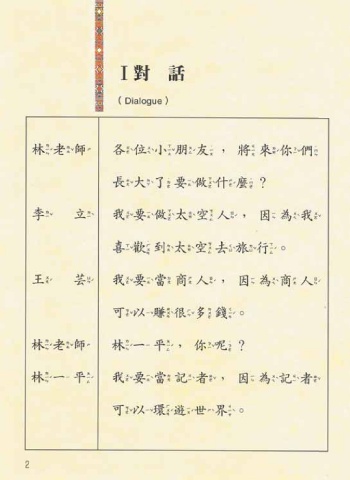 I 對 話
(Dialogue)
林老師 各位小朋友，將來你們
長大了要做什麼？
李 立 我要做太空人，因為我
喜歡到太空去旅行。
王 芸 我要當商人，因為商人
可以賺很多錢。
林老師 林一平，你呢？
林一平 我要當記者，因為記者
可以環遊世界。
2